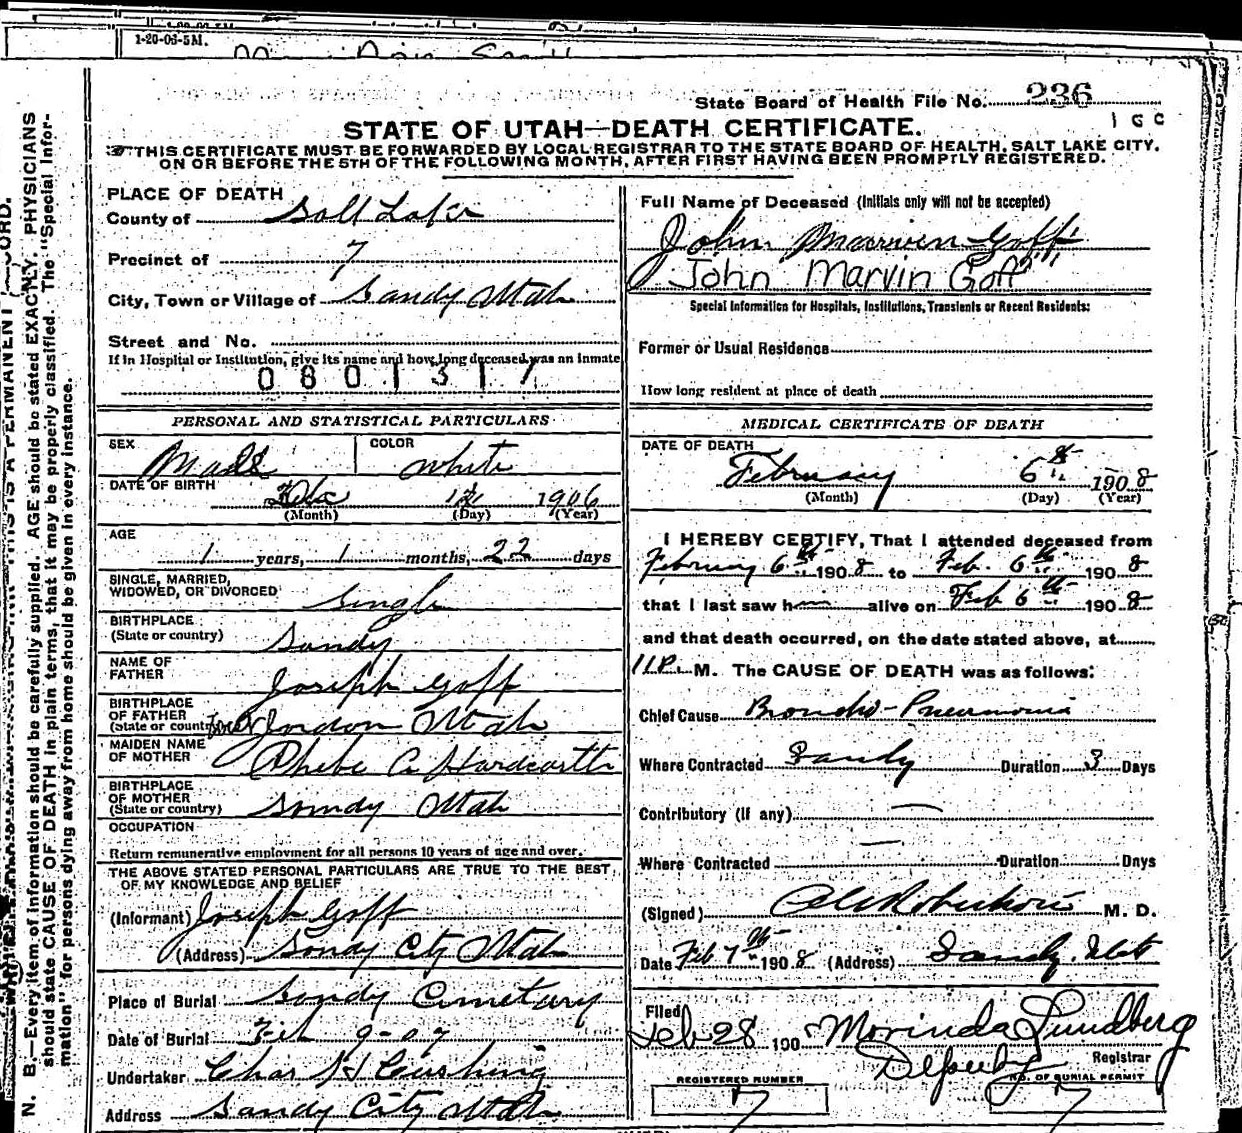 1-20-06-5M.
State Board of Health File No. 236
STATE OF UTAH—DEATH CERTIFICATE.
THIS CERTIFICATE MUST BE FORWARDED BY LOCAL REGISTRAR TO THE STATE BOARD OF HEALTH, SALT LAKE CITY,
ON OR BEFORE THE 5TH OF THE FOLLOWING MONTH, AFTER FIRST HAVING BEEN PROMPTLY REGISTERED.
PLACE OF DEATH
County of Salt Lake
Precinct of 7
City, Town or Village of Sandy Utah
Street and No.
If in Hospital or Institution, give its name and how long deceased was an inmate
0801317
PERSONAL AND STATISTICAL PARTICULARS
SEX Male COLOR White
DATE OF BIRTH 1906
(Month) (Day) (Year)
AGE
1 years, 1 months, 22 days
SINGLE, MARRIED,
WIDOWED, OR DIVORCED Single
BIRTHPLACE
(State or country) Sandy
NAME OF
FATHER Joseph Goff
BIRTHPLACE
OF FATHER
(State or country) West Jordan Utah
MAIDEN NAME
OF MOTHER Phebe A Hardcastle
BIRTHPLACE
OF MOTHER
(State or country) Sandy Utah
OCCUPATION
Return remunerative employment for all persons 10 years of age and over.
THE ABOVE STATED PERSONAL PARTICULARS ARE TRUE TO THE BEST
OF MY KNOWLEDGE AND BELIEF
(Informant) Joseph Goff
(Address) Sandy City Utah
Place of Burial Sandy Cemetary
Date of Burial Feb 9-07
Undertaker Chas H Cushing
Address Sandy City Utah
Full Name of Deceased (Initials only will not be accepted)
John Marvin Goff
John Marvin Goff
Special Information for Hospitals, Institutions, Transients or Recent Residents:
Former or Usual Residence
How long resident at place of death
MEDICAL CERTIFICATE OF DEATH
DATE OF DEATH
February 6th 1908
(Month) (Day) (Year)
I HEREBY CERTIFY, That I attended deceased from
February 6th 1908 to Feb. 6th 1908
that I last saw him alive on Feb 6th 1908
and that death occurred, on the date stated above, at
11 P. M. The CAUSE OF DEATH was as follows:
Chief Cause Broncho-Pneumonia
Where Contracted Sandy Duration 3 Days
Contributory (if any) —
Where Contracted — Duration Days
(Signed) Robertson M. D.
Date Feb 7th 1908 (Address) Sandy, Utah
Filed
Feb 28 190 Morinda Lundberg
Deputy Registrar
REGISTERED NUMBER NO. OF BURIAL PERMIT
7 7
N. B.—Every item of information should be carefully supplied. AGE should be stated EXACTLY. PHYSICIANS
should state CAUSE OF DEATH in plain terms, that it may be properly classified. The "Special Infor-
mation" for persons dying away from home should be given in every instance.